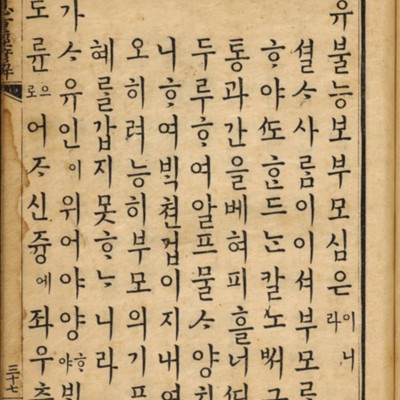 유불능보부모심은이니라
셜ᄉᆞ사름이이셔부모
ᄒᆞ야ᄯᅩᄒᆞᆫ드ᄂᆞᆫ칼노ᄡᅥ
통과간을베혀피흘너
두루ᄒᆞ여알프물ᄉᆞ양치
니ᄒᆞ여ᄇᆡᆨ쳔겁이지내여
오히려능히부모의기
혜를갑지못ᄒᆞᄂᆞ니라
가ᄉᆞ유인이위어야양ᄒᆞ야
도륜으로어ᄌᆞ신즁에좌우
三十七